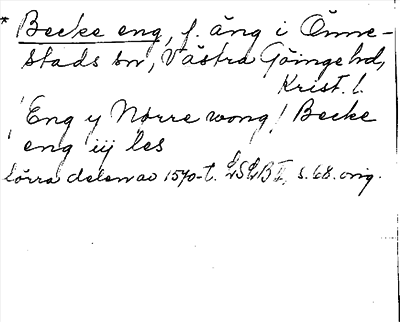 * Becke eng, f. äng i Önne-
stads sn, Västra Göinge hd,
Krist. l.
"Eng y Nørre wong! Becke
eng iij les
förra delen av 1570-t. LSLB II, s. 68. orig.